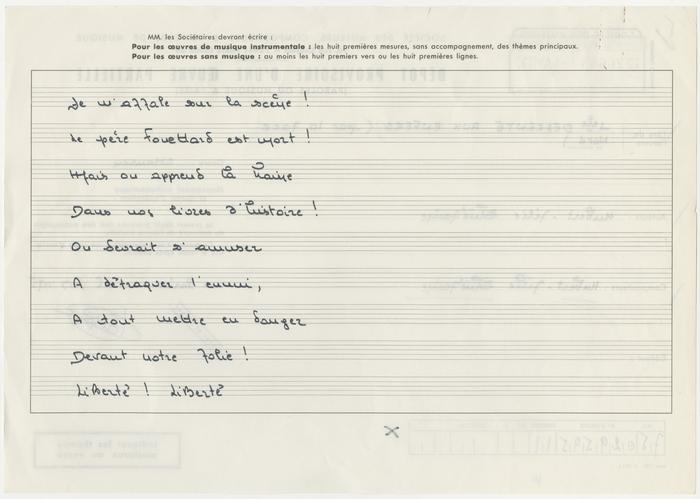 MM. les Sociétaires devront écrire :
Pour les œuvres de musique instrumentale : les huit premières mesures, sans accompagnement, des thèmes principaux.
Pour les œuvres sans musique : au moins les huit premiers vers ou les huit premières lignes.
Je m'affale sur la scène !
Le père Fouettard est mort !
Mais on apprend la haine
Dans nos livres d'histoire !
On devrait s'amuser
A détraquer l'ennui,
A tout mettre en danger
Devant notre folie !
Liberté ! Liberté
X